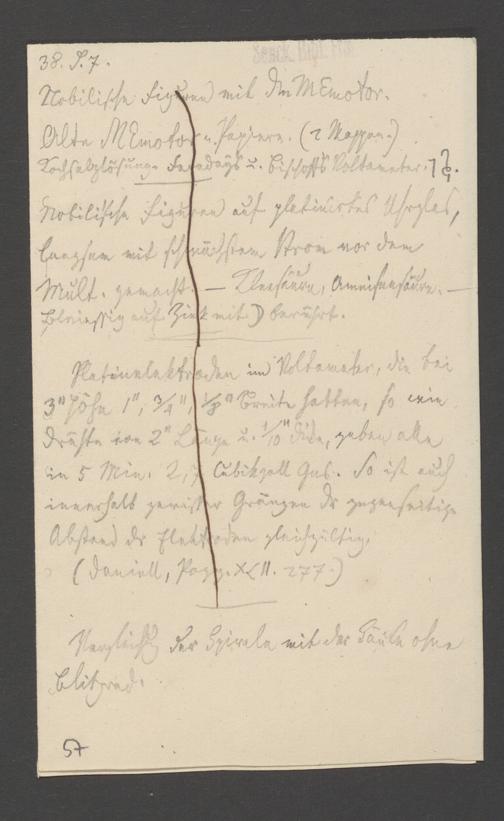 38. S. 7.
Senck. Bibl. Ffm
Nobilische Figuren mit dem MEmotor.
Alte MEmotor u. Papiere. (2 Mappen.)
Kochsalzlösung. Faradays u. Bischoffs Voltameter.
Nobilische Figuren auf platinirtes Uhrglas,
langsam mit schwächstem Strom vor dem
Mult. gemacht. — Kleesäure, Ameisensäure. —
Bleiessig auf Zink mit berührt.
Platinelektroden im Voltameter, die bei
3" Höhe 1", 3/4", 1/8" Breite hatten, so wie
Drähte von 2" Länge u. 1/10" Dicke, geben alle
in 5 Min. 2,7 Cubikzoll Gas. So ist auch
innerhalb gewisser Gränzen der gegenseitige
Abstand der Elektroden gleichgültig.
(Daniell, Pogg. XLII. 277.)
Vergleich der Spirale mit der Säule ohne
Blitzrad.
57